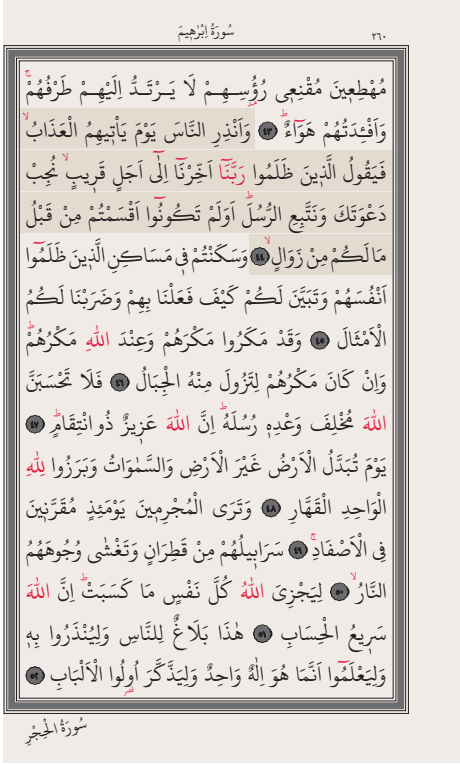 سُورَةُ اِبْرٰهِيمَ
٢٦٠
مُهْطِعِينَ مُقْنِعِى رُؤُسِهِمْ لَا يَرْتَدُّ اِلَيْهِمْ طَرْفُهُمْۚ
وَاَفْـِٔدَتُهُمْ هَوَٓاءٌؕ ٤٣ وَاَنْذِرِ النَّاسَ يَوْمَ يَأْتِيهِمُ الْعَذَابُۙ
فَيَقُولُ الَّذِينَ ظَلَمُوا رَبَّنَٓا اَخِّرْنَٓا اِلٰٓى اَجَلٍ قَرِيبٍۙ نُجِبْ
دَعْوَتَكَ وَنَتَّبِعِ الرُّسُلَؕ اَوَلَمْ تَكُونُٓوا اَقْسَمْتُمْ مِنْ قَبْلُ
مَا لَكُمْ مِنْ زَوَالٍۙ ٤٤ وَسَكَنْتُمْ فِى مَسَاكِنِ الَّذِينَ ظَلَمُٓوا
اَنْفُسَهُمْ وَتَبَيَّنَ لَكُمْ كَيْفَ فَعَلْنَا بِهِمْ وَضَرَبْنَا لَكُمُ
الْاَمْثَالَ ٤٥ وَقَدْ مَكَرُوا مَكْرَهُمْ وَعِنْدَ اللّٰهِ مَكْرُهُمْؕ
وَاِنْ كَانَ مَكْرُهُمْ لِتَزُولَ مِنْهُ الْجِبَالُ ٤٦ فَلَا تَحْسَبَنَّ
اللّٰهَ مُخْلِفَ وَعْدِهٖ رُسُلَهُؕ اِنَّ اللّٰهَ عَزِيزٌ ذُو انْتِقَامٍؕ ٤٧
يَوْمَ تُبَدَّلُ الْاَرْضُ غَيْرَ الْاَرْضِ وَالسَّمٰوَاتُ وَبَرَزُوا لِلّٰهِ
الْوَاحِدِ الْقَهَّارِ ٤٨ وَتَرَى الْمُجْرِمِينَ يَوْمَئِذٍ مُقَرَّنِينَ
فِى الْاَصْفَادِۚ ٤٩ سَرَابِيلُهُمْ مِنْ قَطِرَانٍ وَتَغْشٰى وُجُوهَهُمُ
النَّارُۙ ٥٠ لِيَجْزِىَ اللّٰهُ كُلَّ نَفْسٍ مَا كَسَبَتْؕ اِنَّ اللّٰهَ
سَرِيعُ الْحِسَابِ ٥١ هٰذَا بَلَاغٌ لِلنَّاسِ وَلِيُنْذَرُوا بِهٖ
وَلِيَعْلَمُٓوا اَنَّمَا هُوَ اِلٰهٌ وَاحِدٌ وَلِيَذَّكَّرَ اُولُوا الْاَلْبَابِ ٥٢
سُورَةُ الْحِجْرِ